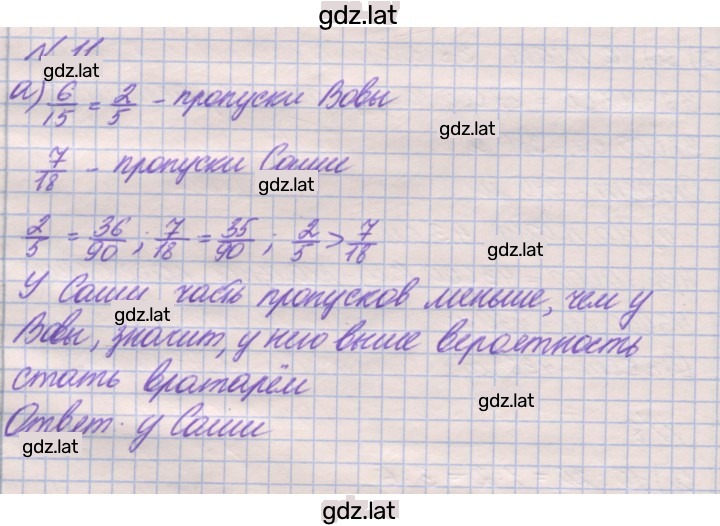 gdz.lat
№ 11
gdz.lat
а) 6/15 = 2/5 - пропуски Вовы
gdz.lat
7/18 - пропуски Саши
gdz.lat
2/5 = 36/90 ; 7/18 = 35/90 ; 2/5 > 7/18
gdz.lat
У Саши часть пропусков меньше, чем у
gdz.lat
Вовы, значит, у него выше вероятность
стать вратарём
gdz.lat
Ответ: у Саши
gdz.lat
gdz.lat